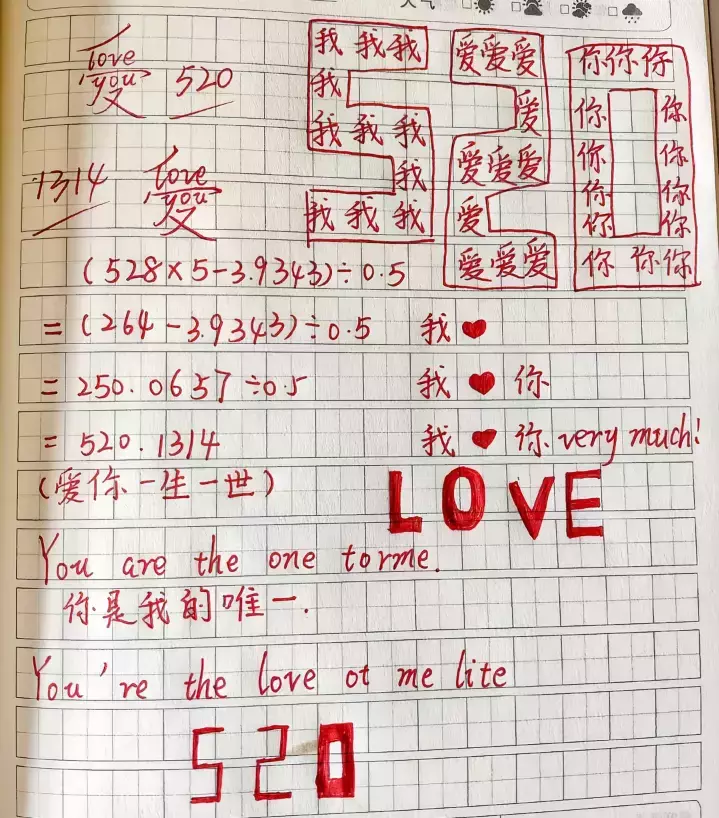 天气
love
you
520
1314
love
you
我 我 我
我
我 我 我
我
我 我 我
爱爱爱
爱
爱爱爱
爱
爱爱爱
你你你
你 你
你 你
你 你
你 你
你 你你
(528×5-3.9343)÷0.5
=(264-3.9343)÷0.5 我❤
=250.0657÷0.5 我❤你
=520.1314 我❤你 very much!
(爱你一生一世)
LOVE
You are the one torme.
你是我的唯一.
You're the love ot me lite
520